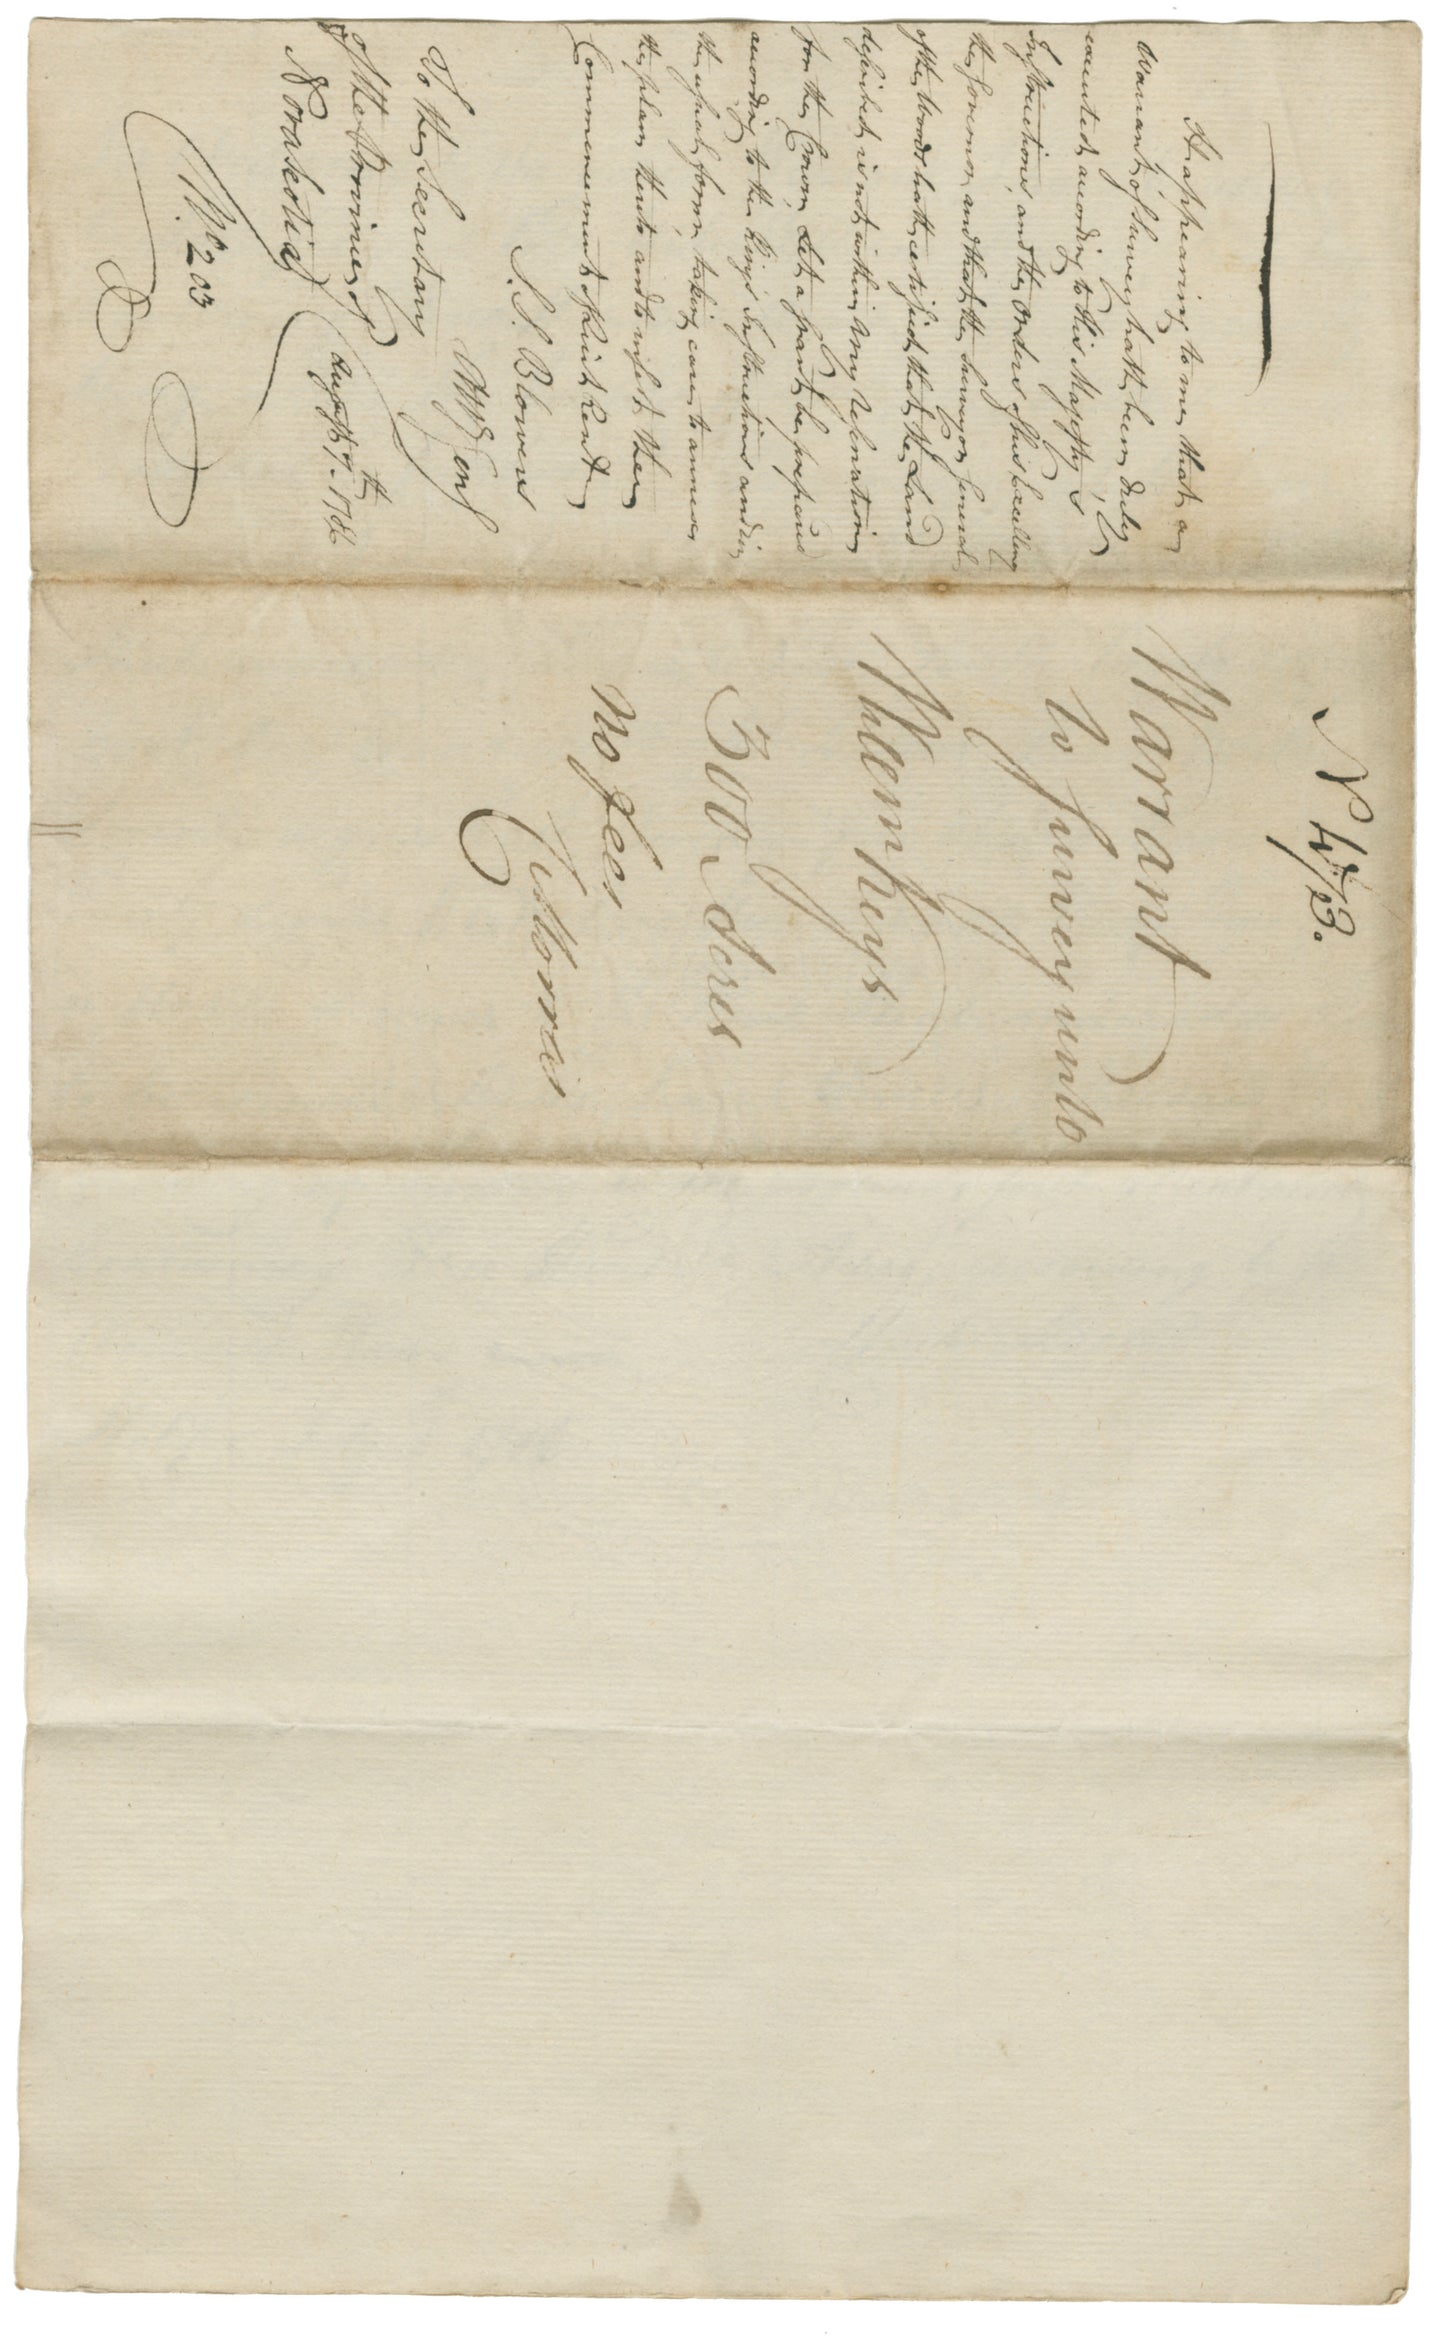 It appearing to me that a
Warrant of Survey hath been duly
executed according to His Majesty's
Instructions, and the Orders of his Excellency
the Governor, and that the Surveyor General
of the Woods hath certified that the Land
described is not within any Reservation
for the Crown, Let a Grant be prepared
according to the Kings Instructions and in
the usual form, taking care to annex
the plan thereto and to insert the
Commencement of Quit Rent
S. S. Blowers
Atty Genl
To the Secretary
of the Province of
Novascotia
August 9th 1786
No. 203
No
Warrant
to Survey unto
Willem Keys
300 Acres
no fees
CMorris